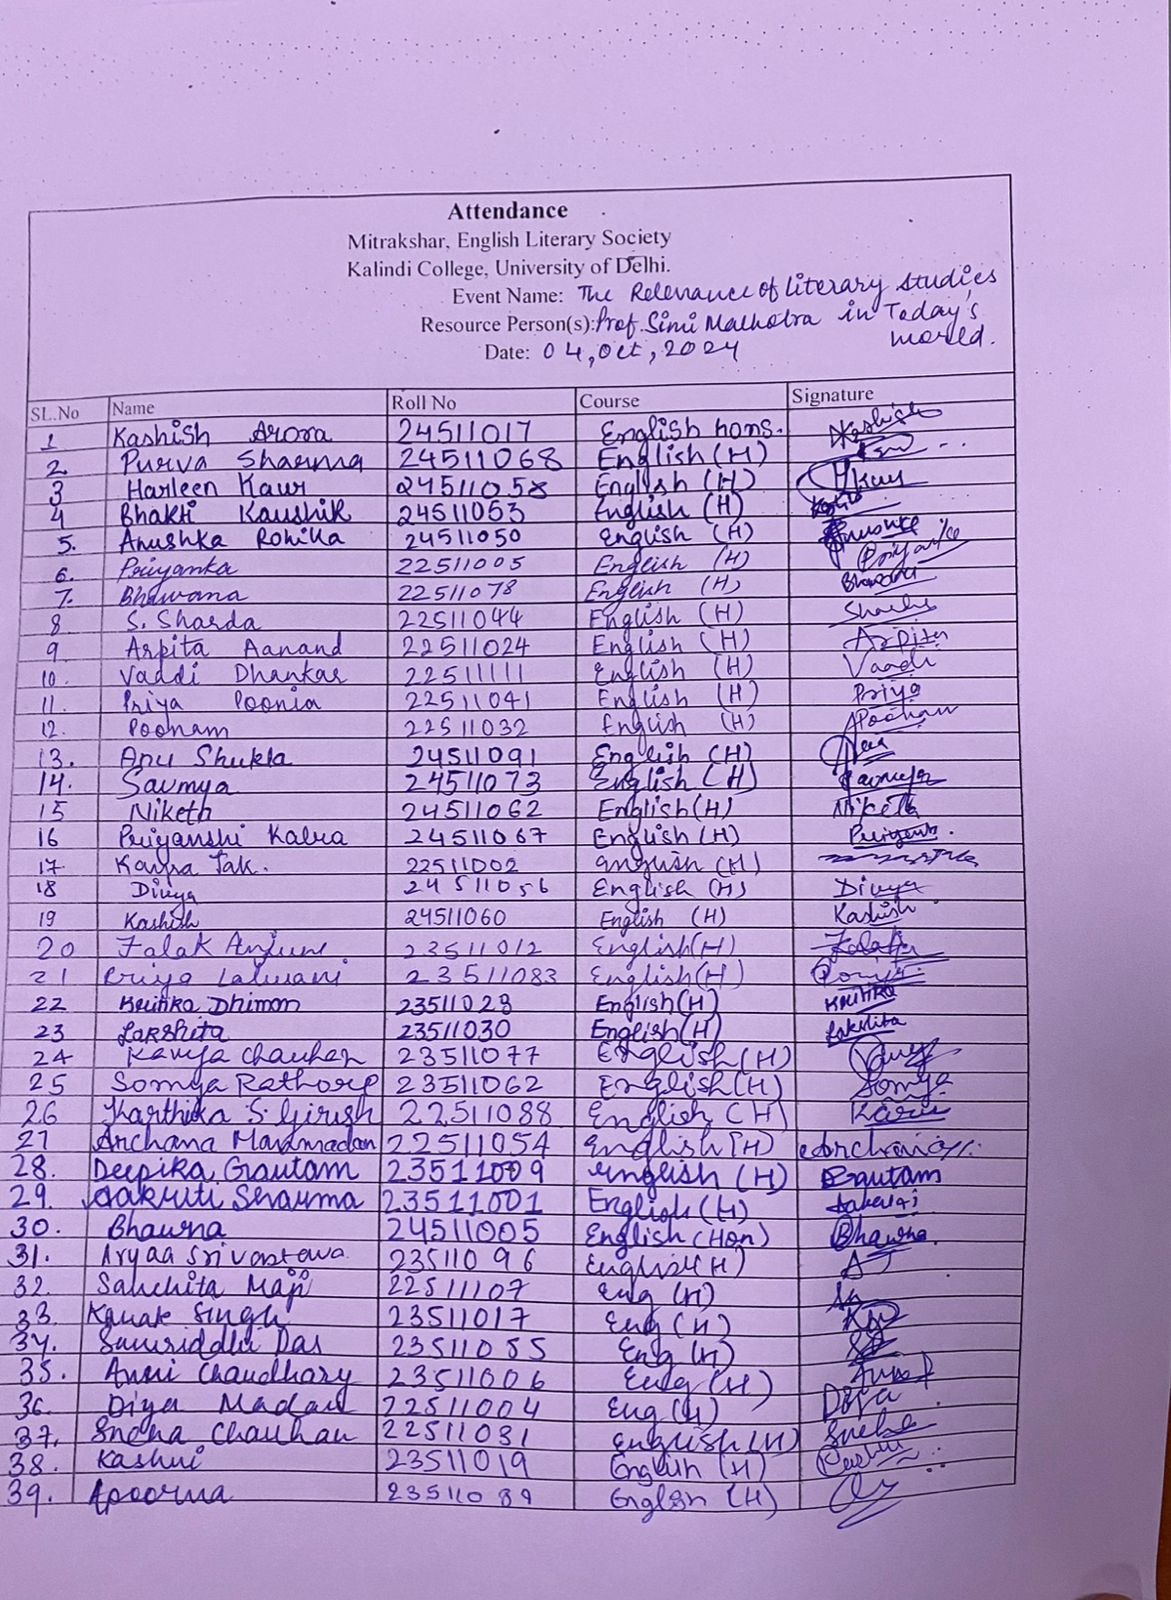 Attendance
Mitrakshar, English Literary Society
Kalindi College, University of Delhi.
Event Name: The Relevance of Literary Studies
Resource Person(s): Prof. Simi Malhotra in Today's
Date: 04, Oct, 2024 world.
SL.No Name Roll No Course Signature
1 Kashish Arora 24511017 English hons. Kashish
2. Purva Sharma 24511068 English (H)
3 Harleen Kaur 24511058 English (H) HKaur
4 Bhakti Kaushik 24511053 English (H)
5. Anushka Rohilla 24511050 English (H) Anushka
6. Priyanka 22511005 English (H) Priyanka
7. Bhawana 22511078 English (H) Bhawana
8 S. Sharda 22511044 English (H) Sharda
9 Arpita Aanand 22511024 English (H) Arpita
10. Vaddi Dhankar 22511111 English (H) Vaadi
11. Priya Poonia 22511041 English (H) Priya
12. Poonam 22511032 English (H) Poonam
13. Anu Shukla 24511091 English (H)
14. Saumya 24511073 English (H) Saumya
15 Niketa 24511062 English (H) Niketa
16 Priyanshi Kalra 24511067 English (H)
17 Kavya Tak. 22511002 English (H)
18 Divya 24511056 English (H) Divya
19 Kashish 24511060 English (H) Kashish
20 Falak Anjum 23511012 English (H)
21 Priya Lalwani 23511083 English (H)
22 Kritika Dhiman 23511028 English (H) Kritika
23 Lakshita 23511030 English (H) Lakshita
24 Kavya Chauhan 23511077 English (H)
25 Somya Rathore 23511062 English (H) Somya
26 Karthika S. Girish 22511088 English (H)
27 Archana Mammadan 22511054 English (H)
28. Deepika Gautam 23511009 English (H) Gautam
29. Aakriti Sharma 23511001 English (H) Aakriti
30. Bhawna 24511005 English (Hon) Bhawna.
31. Aryaa Srivastava 23511096 English (H)
32. Sanchita Maji 22511107 Eng (H)
33. Kanak Singh 23511017 Eng (H)
34. Samriddhi Das 23511055 Eng (H)
35. Anni Chaudhary 23511006 Eng (H)
36. Diya Madan 22511004 Eng (H) Diya
37. Sneha Chauhan 22511031 English (H) Sneha
38. Kashvi 23511019 English (H)
39. Apoorna 23511089 English (H)